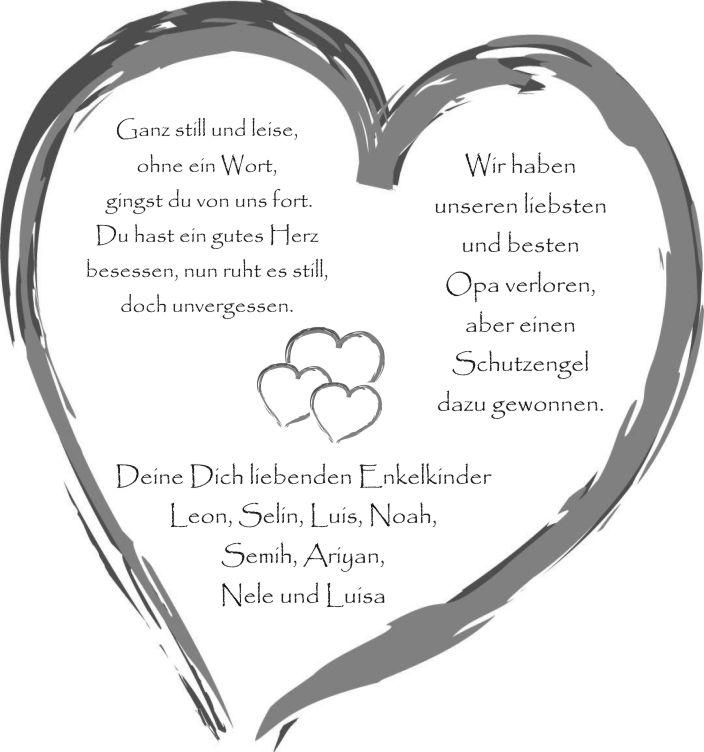 Ganz still und leise,
ohne ein Wort,
gingst du von uns fort.
Du hast ein gutes Herz
besessen, nun ruht es still,
doch unvergessen.
Wir haben
unseren liebsten
und besten
Opa verloren,
aber einen
Schutzengel
dazu gewonnen.
Deine Dich liebenden Enkelkinder
Leon, Selin, Luis, Noah,
Semih, Ariyan,
Nele und Luisa